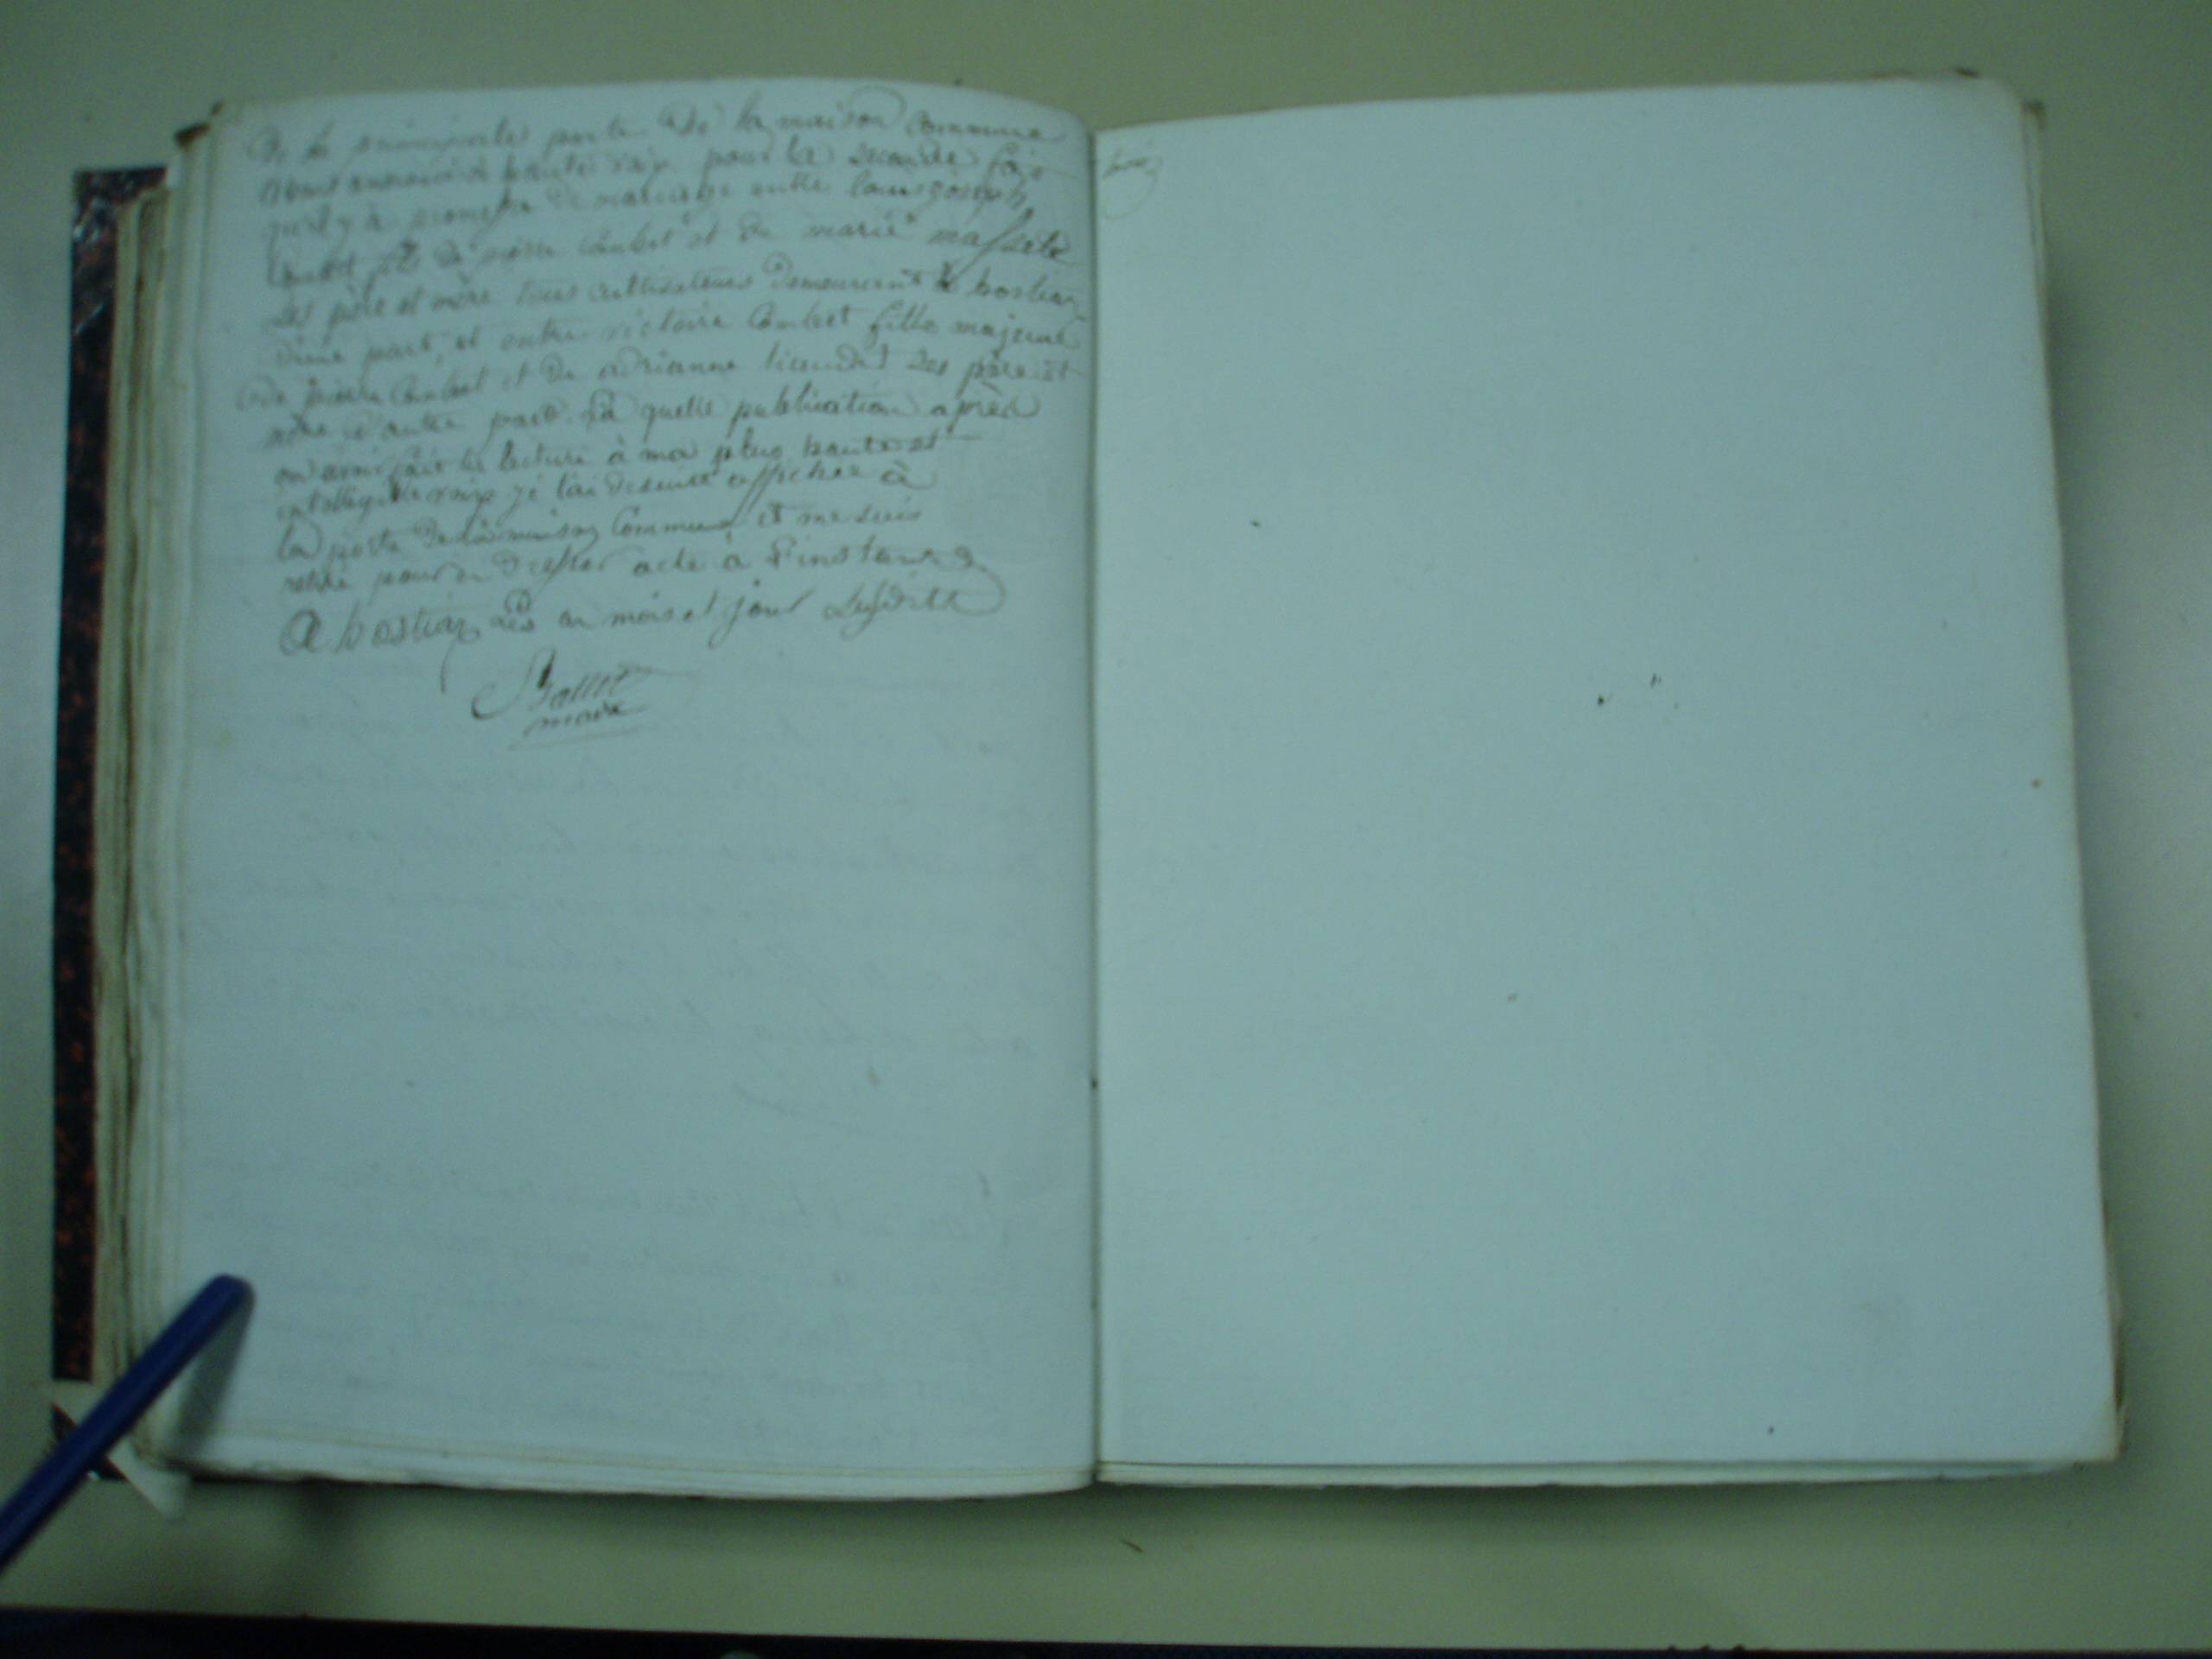 de la principales porte de la maison Commune
avons annoncé à haute voix pour la seconde fois
qu'il y a promesse de mariage entre louis joseph
Combet fils de pierre Combet et de marie
ses père et mère tous cultivateurs demeurant à bostian
d'une part, et entre victoire Combet fille majeure
de pierre Combet et de adrianne ses père et
mère d'autre part. La quelle publication après
en avoir fait la lecture à ma plus haute et
intelligible voix je l'ai desuite affichée à
la porte de la maison Commune et me suis
retiré pour en dresser acte à l'instant
A bostian les an mois et jour susdits
maire